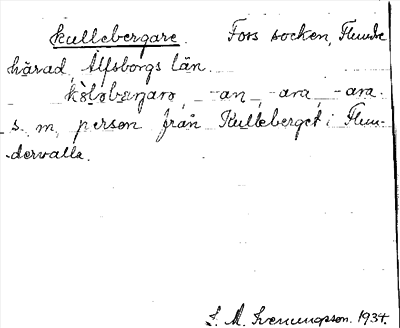 kullebergare. Fors socken, Flundre
härad, Älfsborgs län.
kölobærjaro, -an, -ara, -ara.
s. m. person från Kulleberget i Flun-
dervalla.
S. M. Svenungsson. 1934.